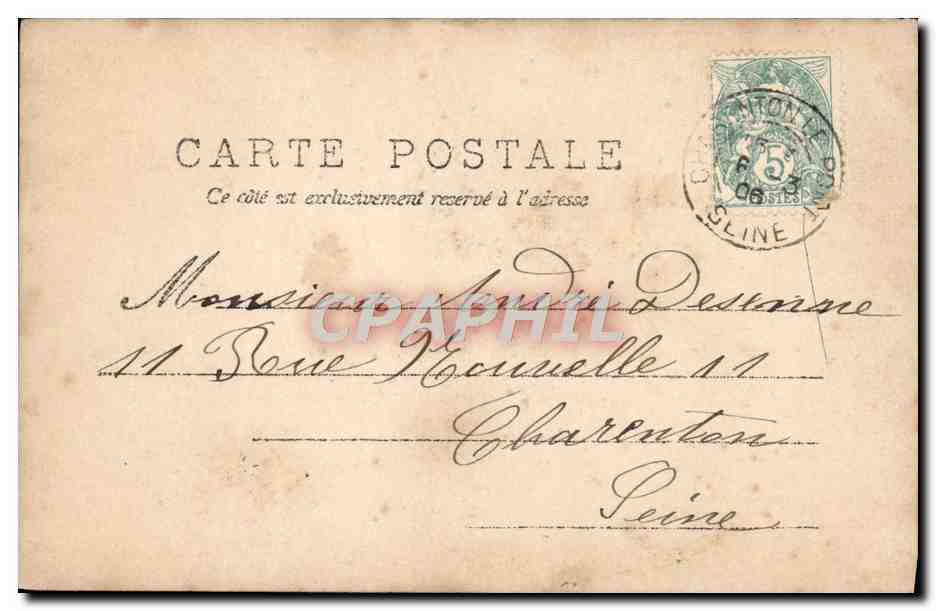 CARTE POSTALE
Ce côté est exclusivement reservé à l'adresse
CHARENTON LE PONT
6 -3
06
SEINE
5
POSTES
Monsieur André Desenne
11 Rue Nouvelle 11
Charenton
Seine
CPAPHIL